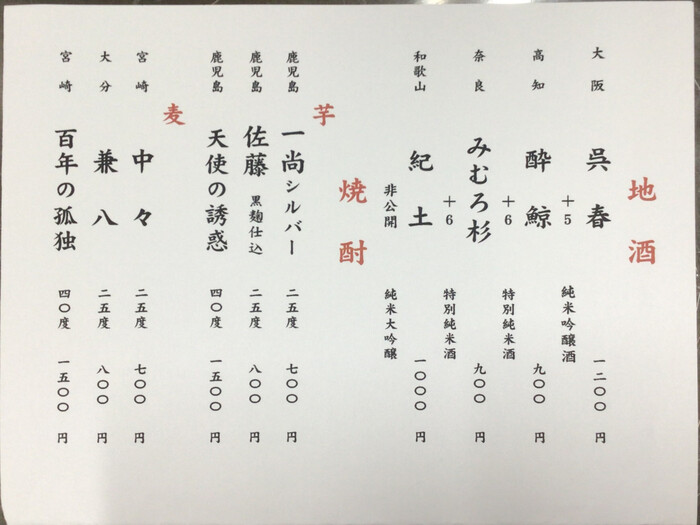 地酒
大阪 呉春 一二〇〇円
+5 純米吟醸酒
高知 酔鯨 九〇〇円
+6 特別純米酒
奈良 みむろ杉 九〇〇円
+6 特別純米酒
和歌山 紀土 一〇〇〇円
非公開 純米大吟醸
焼酎
芋
鹿児島 一尚シルバー 二五度 七〇〇円
鹿児島 佐藤 黒麹仕込 二五度 八〇〇円
鹿児島 天使の誘惑 四〇度 一五〇〇円
麦
宮崎 中々 二五度 七〇〇円
大分 兼八 二五度 八〇〇円
宮崎 百年の孤独 四〇度 一五〇〇円